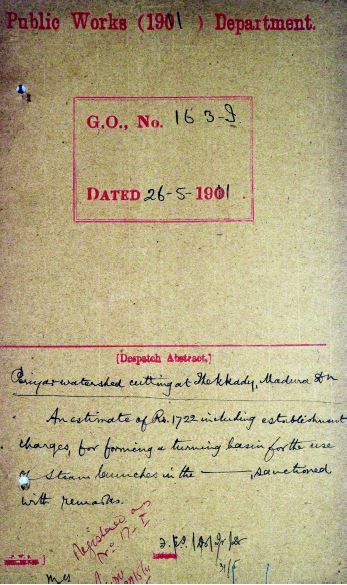 Public Works (1901) Department.
G.O., No. 163-I
DATED 26-5-1901.
[Despatch Abstract.]
Periyar watershed cutting at Thekkady, Madura Dn
An estimate of Rs. 1722 including establishment
charges, for forming a turning basin for the use
of steam launches in the ———, sanctioned
with remarks.
Registered as
No 17-I